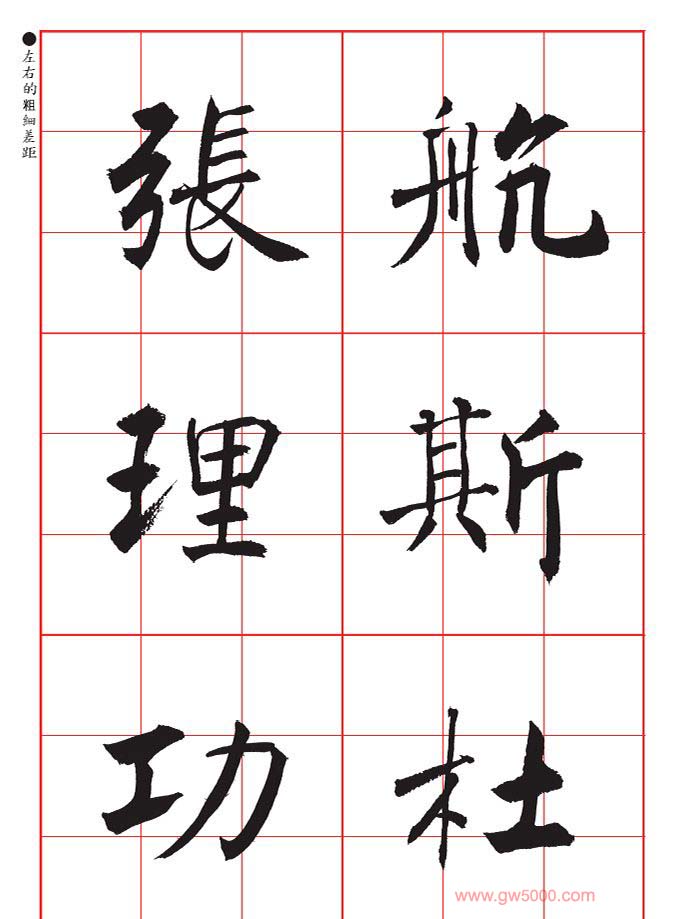 ●左右的粗细差距
張 航
理 斯
功 杜
www.gw5000.com